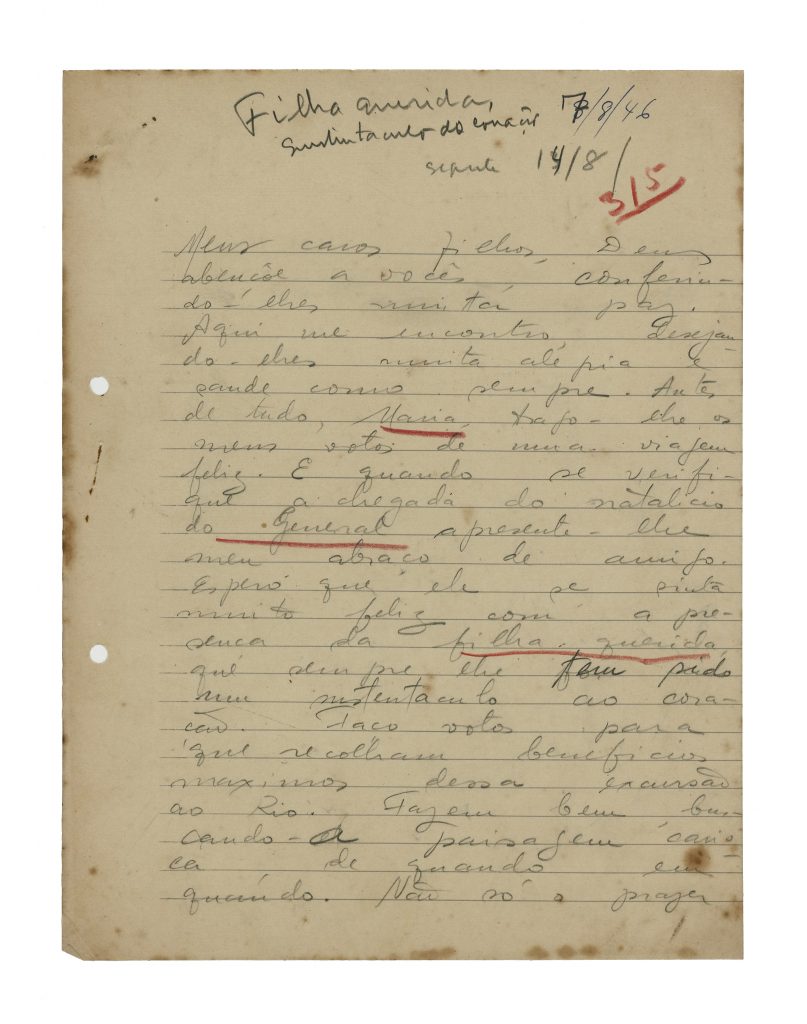 Filha querida, 7/8/46
sustentaculo do coração
segunte 14/8/
315
Meus caros filhos, Deus
abençôe a vocês, conferin-
do-lhes muita paz.
Aqui me encontro, desejan-
do-lhes muita alegria e
saude como sempre. Antes
de tudo, Maria, trago-lhe os
meus votos de uma viagem
feliz. E quando se verifi-
que a chegada do natalicio
do General apresente-lhe
meu abraço de amigo.
Espero que ele se sinta
muito feliz com a pre-
sença da filha querida,
que sempre lhe tem sido
um sustentaculo ao cora-
ção. Faço votos para
que recolham beneficios
maximos dessa excursão
ao Rio. Fazem bem bus-
cando a paisagem cario-
ca de quando em
quando. Não só o prazer
1